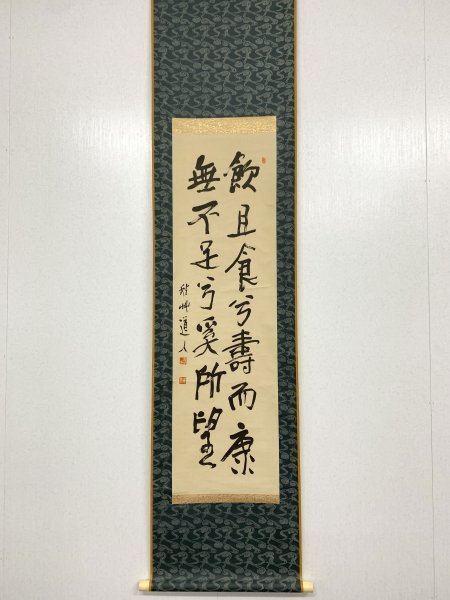 飲且食兮壽而康
無不足兮奚所望